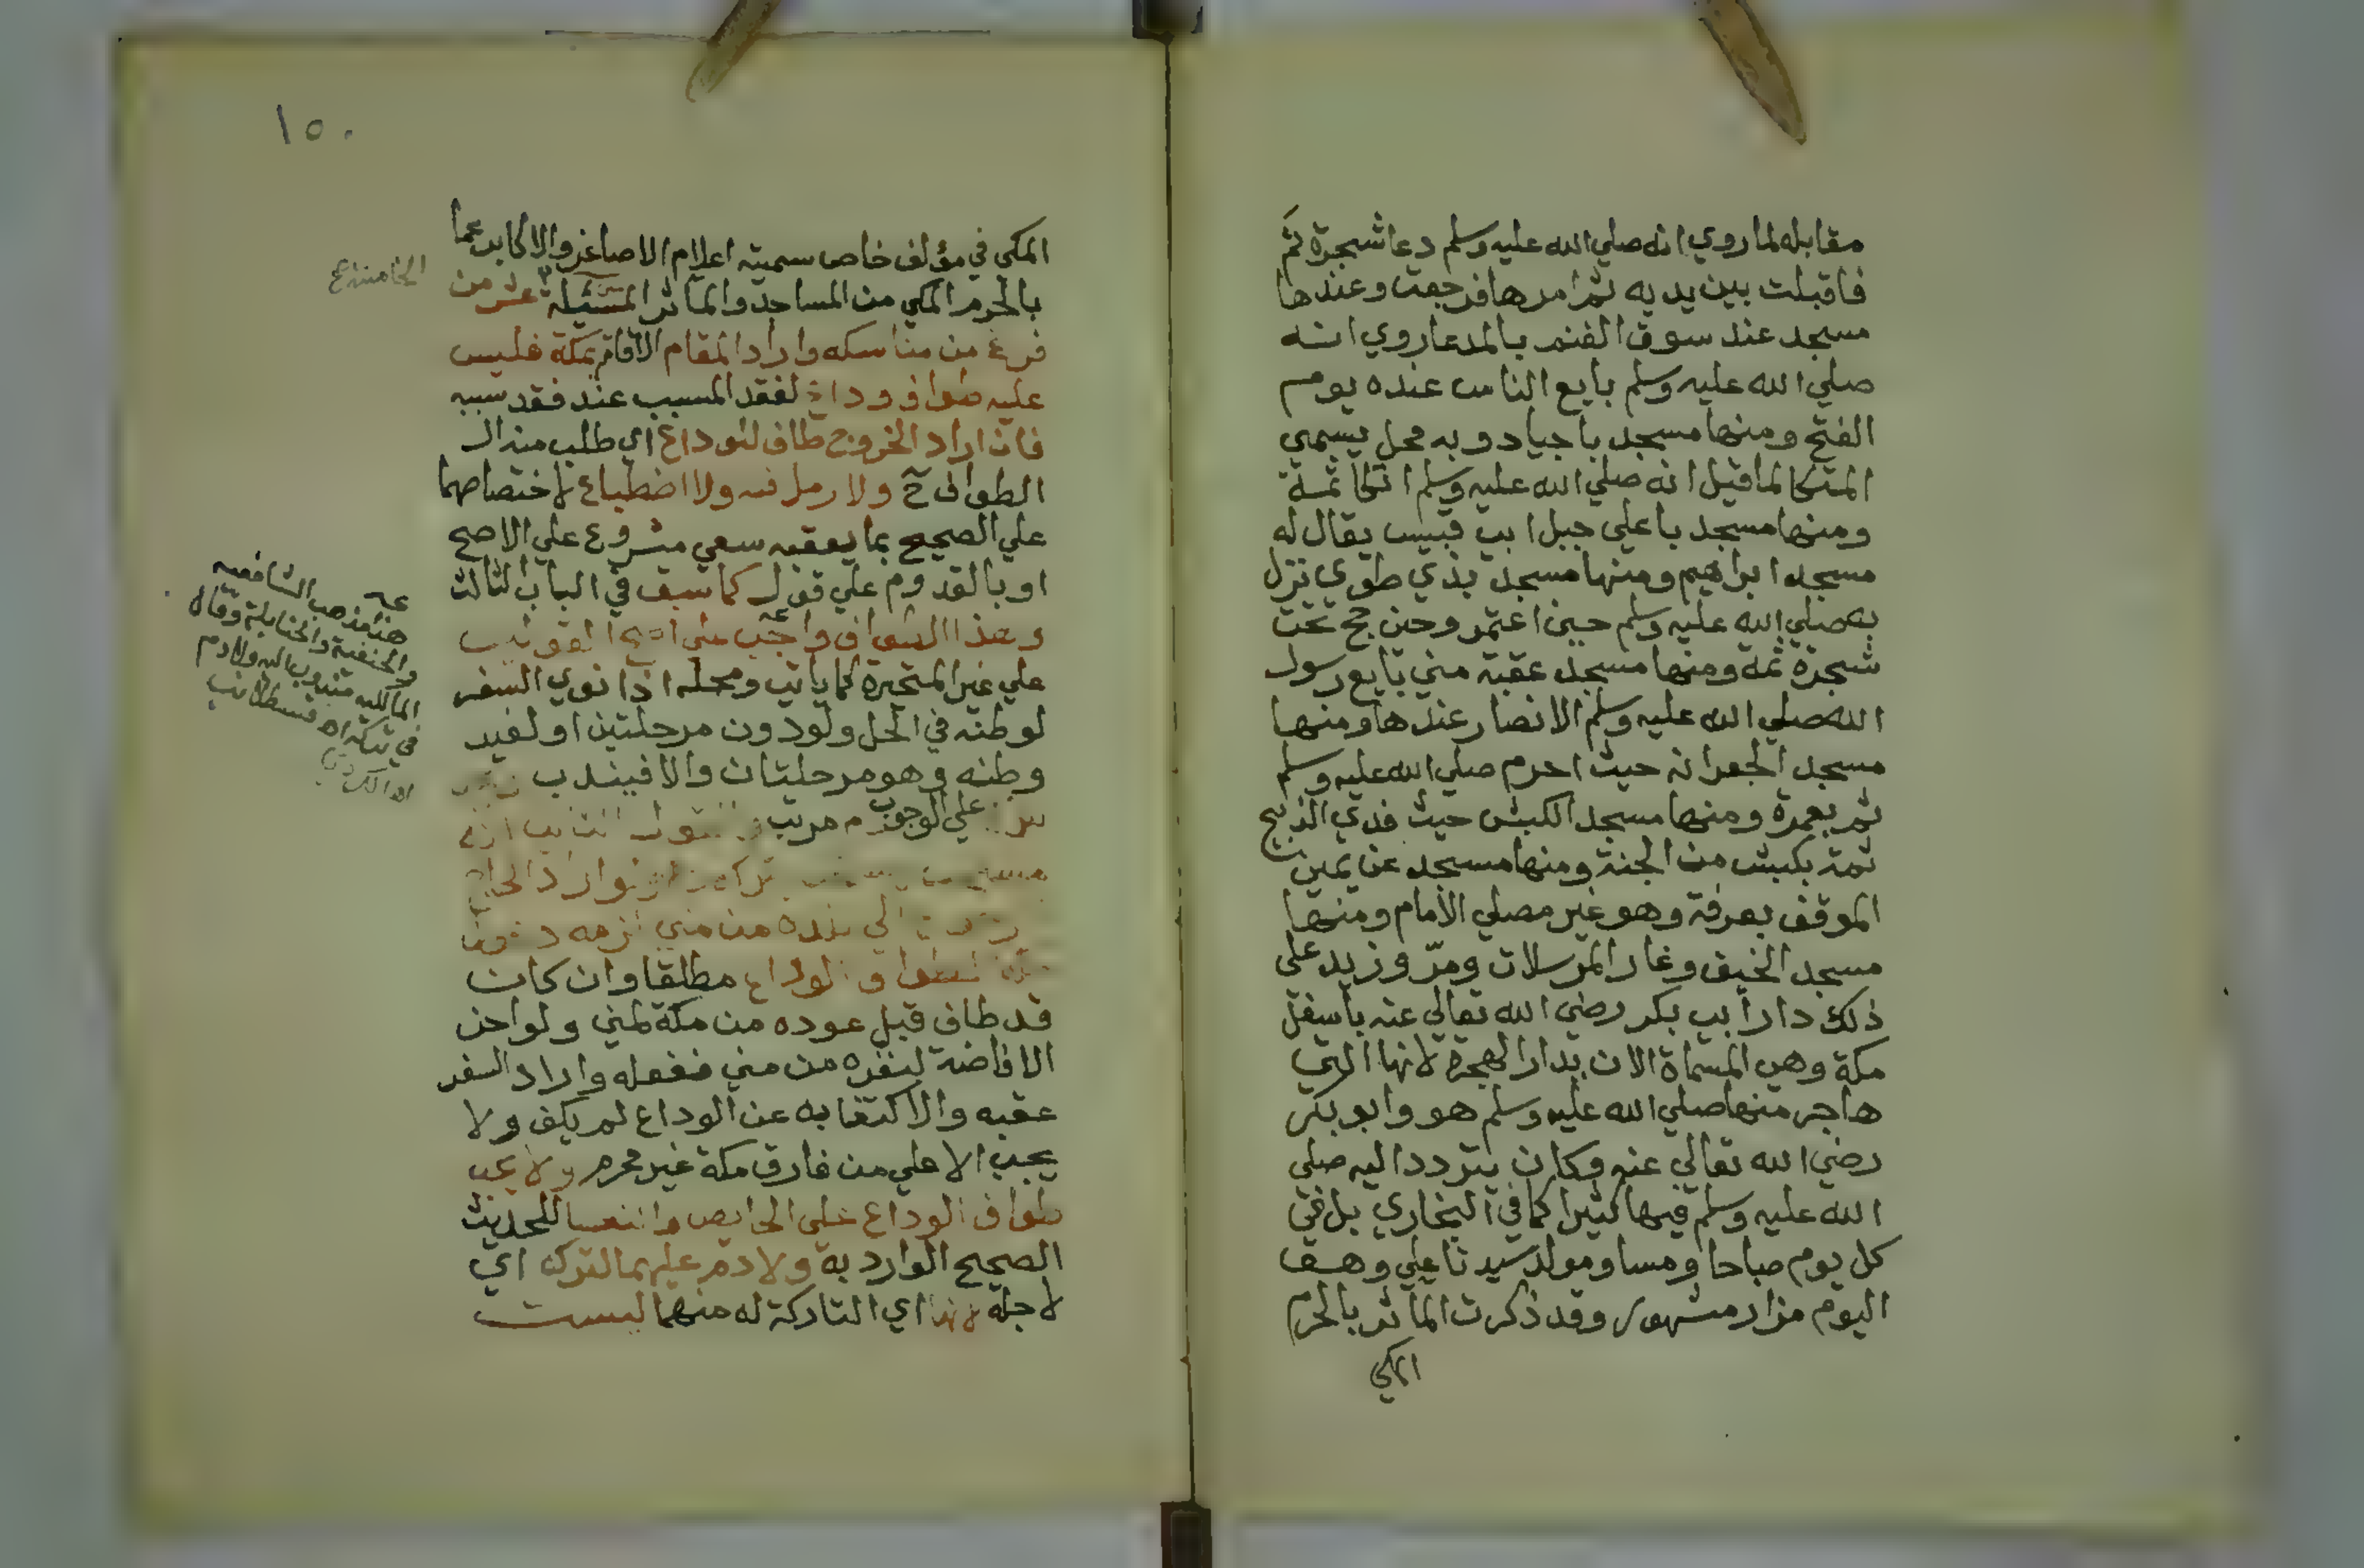 مقابله لما روي انه صلي الله عليه وسلم دعا شجرة ثم
فاقبلت بين يديه ثم امرها فرجعت وعندها
مسجد عند سوق الغنم بالمدعا روي انه
صلي الله عليه وسلم بايع الناس عنده يوم
الفتح ومنها مسجد باجياد وبه محل يسمي
المتكا لما قيل انه صلي الله عليه وسلم اتكا ثمة
ومنها مسجد باعلي جبل ابي قبيس يقال له
مسجد ابراهيم ومنها مسجد بذي طوي نزل
به صلي الله عليه وسلم حين اعتمر وحين حج تحت
شجرة ثمة ومنها مسجد عقبة مني بايع رسول
الله صلي الله عليه وسلم الانصار عندها ومنها
مسجد الجعرانه حيث احرم صلي الله عليه وسلم
ثم بعمرة ومنها مسجد الكبش حيث فدي الذبيح
ثمة بكبش من الجنة ومنها مسجد عن يمين
الموقف بعرفة وهو غير مصلي الامام ومنها
مسجد الخيف وغار المرسلات ومر وزيد علي
ذلك دار ابي بكر رضي الله تعالي عنه باسفل
مكة وهي المسماة الان بدار الهجرة لانها التي
هاجر منها صلي الله عليه وسلم هو وابو بكر
رضي الله تعالي عنه وكان يتردد اليه صلي
الله عليه وسلم فيها كثيرا كما في البخاري بل في
كل يوم صباحا ومسا ومولد سيدنا علي وهــو
اليوم مزار مشهور وقد ذكرت المآثر بالحرم
المكي
١٥٠
المكي في مؤلف خاص سميته اعلام الاصاغر والاكابر بما
بالحرم المكي من المساجد والمآثر المسئلة عشر من
الخامسة ع
فرغ من مناسكه واراد المقام الاقامة بمكة فليس
عليه طواف وداع لفقد المسبب عند فقد سببه
فان اراد الخروج طاف للوداع اي طلب منه الـ
الطواف ح ولا رمل فيه ولا اضطباع لاختصاصهما
علي الصحيح بما يعقبه سعي مشروع علي الاصح
او بالقدوم علي قول كما سبق في الباب الثالث
وهذا الطواف واجب علي اصح القولين
علي غير المتحيرة كما ياتي ومحله اذا نوي السفر
لوطنه في الحل ولو دون مرحلتين او لغير
وطنه وهو مرحلتان والا فيندب
علي الوجوب دم مرتب والقول الثاني انه
تركه ولو اراد الحاج
الي بلده من مني لزمه دخول
لطواف الوداع مطلقا وان كان
قد طاف قبل عوده من مكة لمني ولو اخر
الافاضة لنفره من مني ففعله واراد السفر
عقبه والاكتفا به عن الوداع لم يكف ولا
يجب الا علي من فارق مكة غير محرم ولا يجب
طواف الوداع علي الحايض والنفسا للحديث
الصحيح الوارد به ولا دم عليهما لتركه اي
لاجله لانها اي التاركة له منهما ليست
هذا مذهب الشافعيه
والحنفية والحنابلة وقال
المالكيه مندوب اليه ولا دم
في تركه اه قسطلاني
اه الكردي